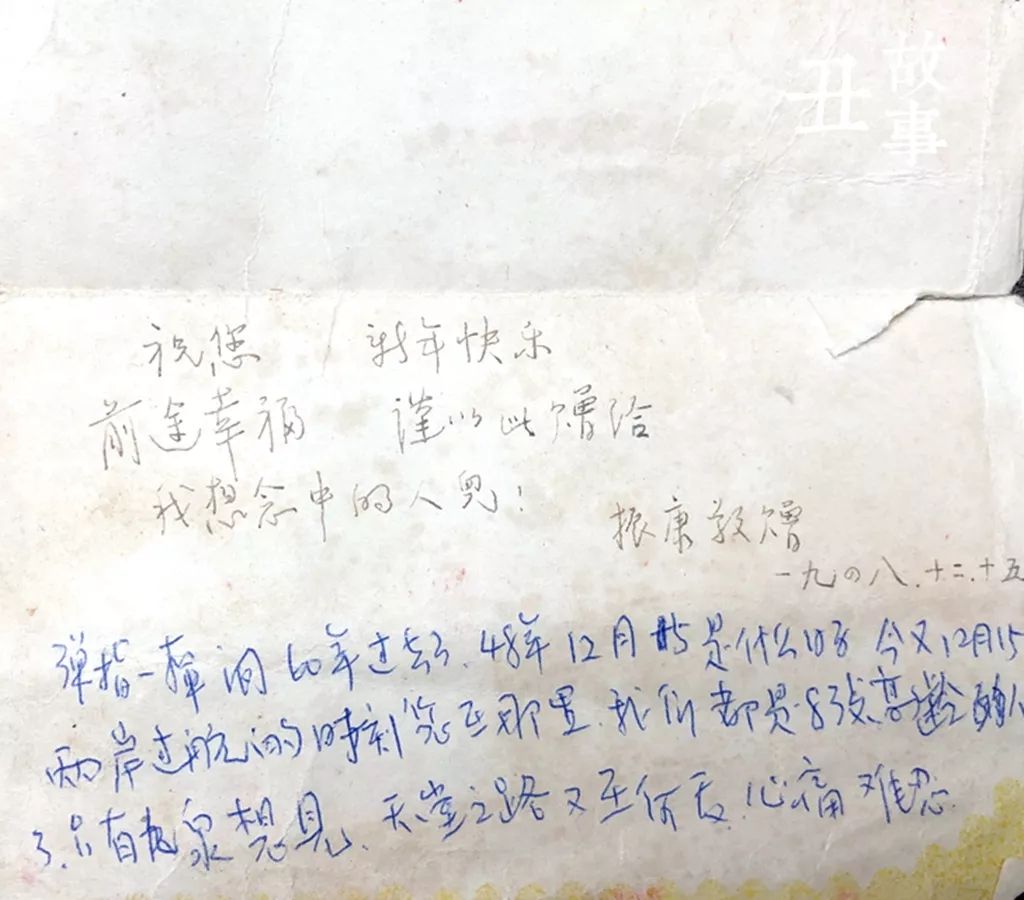 故事
丑
祝您 新年快乐
前途幸福 谨以此赠给
我想念中的人兒!
振康敬赠
一九四八.十二.十五
弹指一挥间60年过去了.48年12月15是什么日子 今又12月15
两岸过航的时刻您在那里.我们都是8张高龄的人
了.只有九泉想见.天堂之路又在何方.心痛难忍.